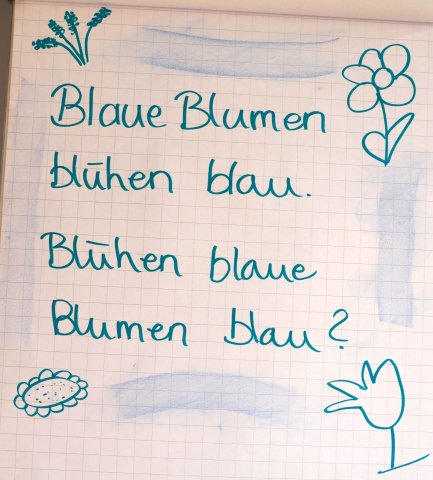 Blaue Blumen
blühen blau.
Blühen blaue
Blumen blau?